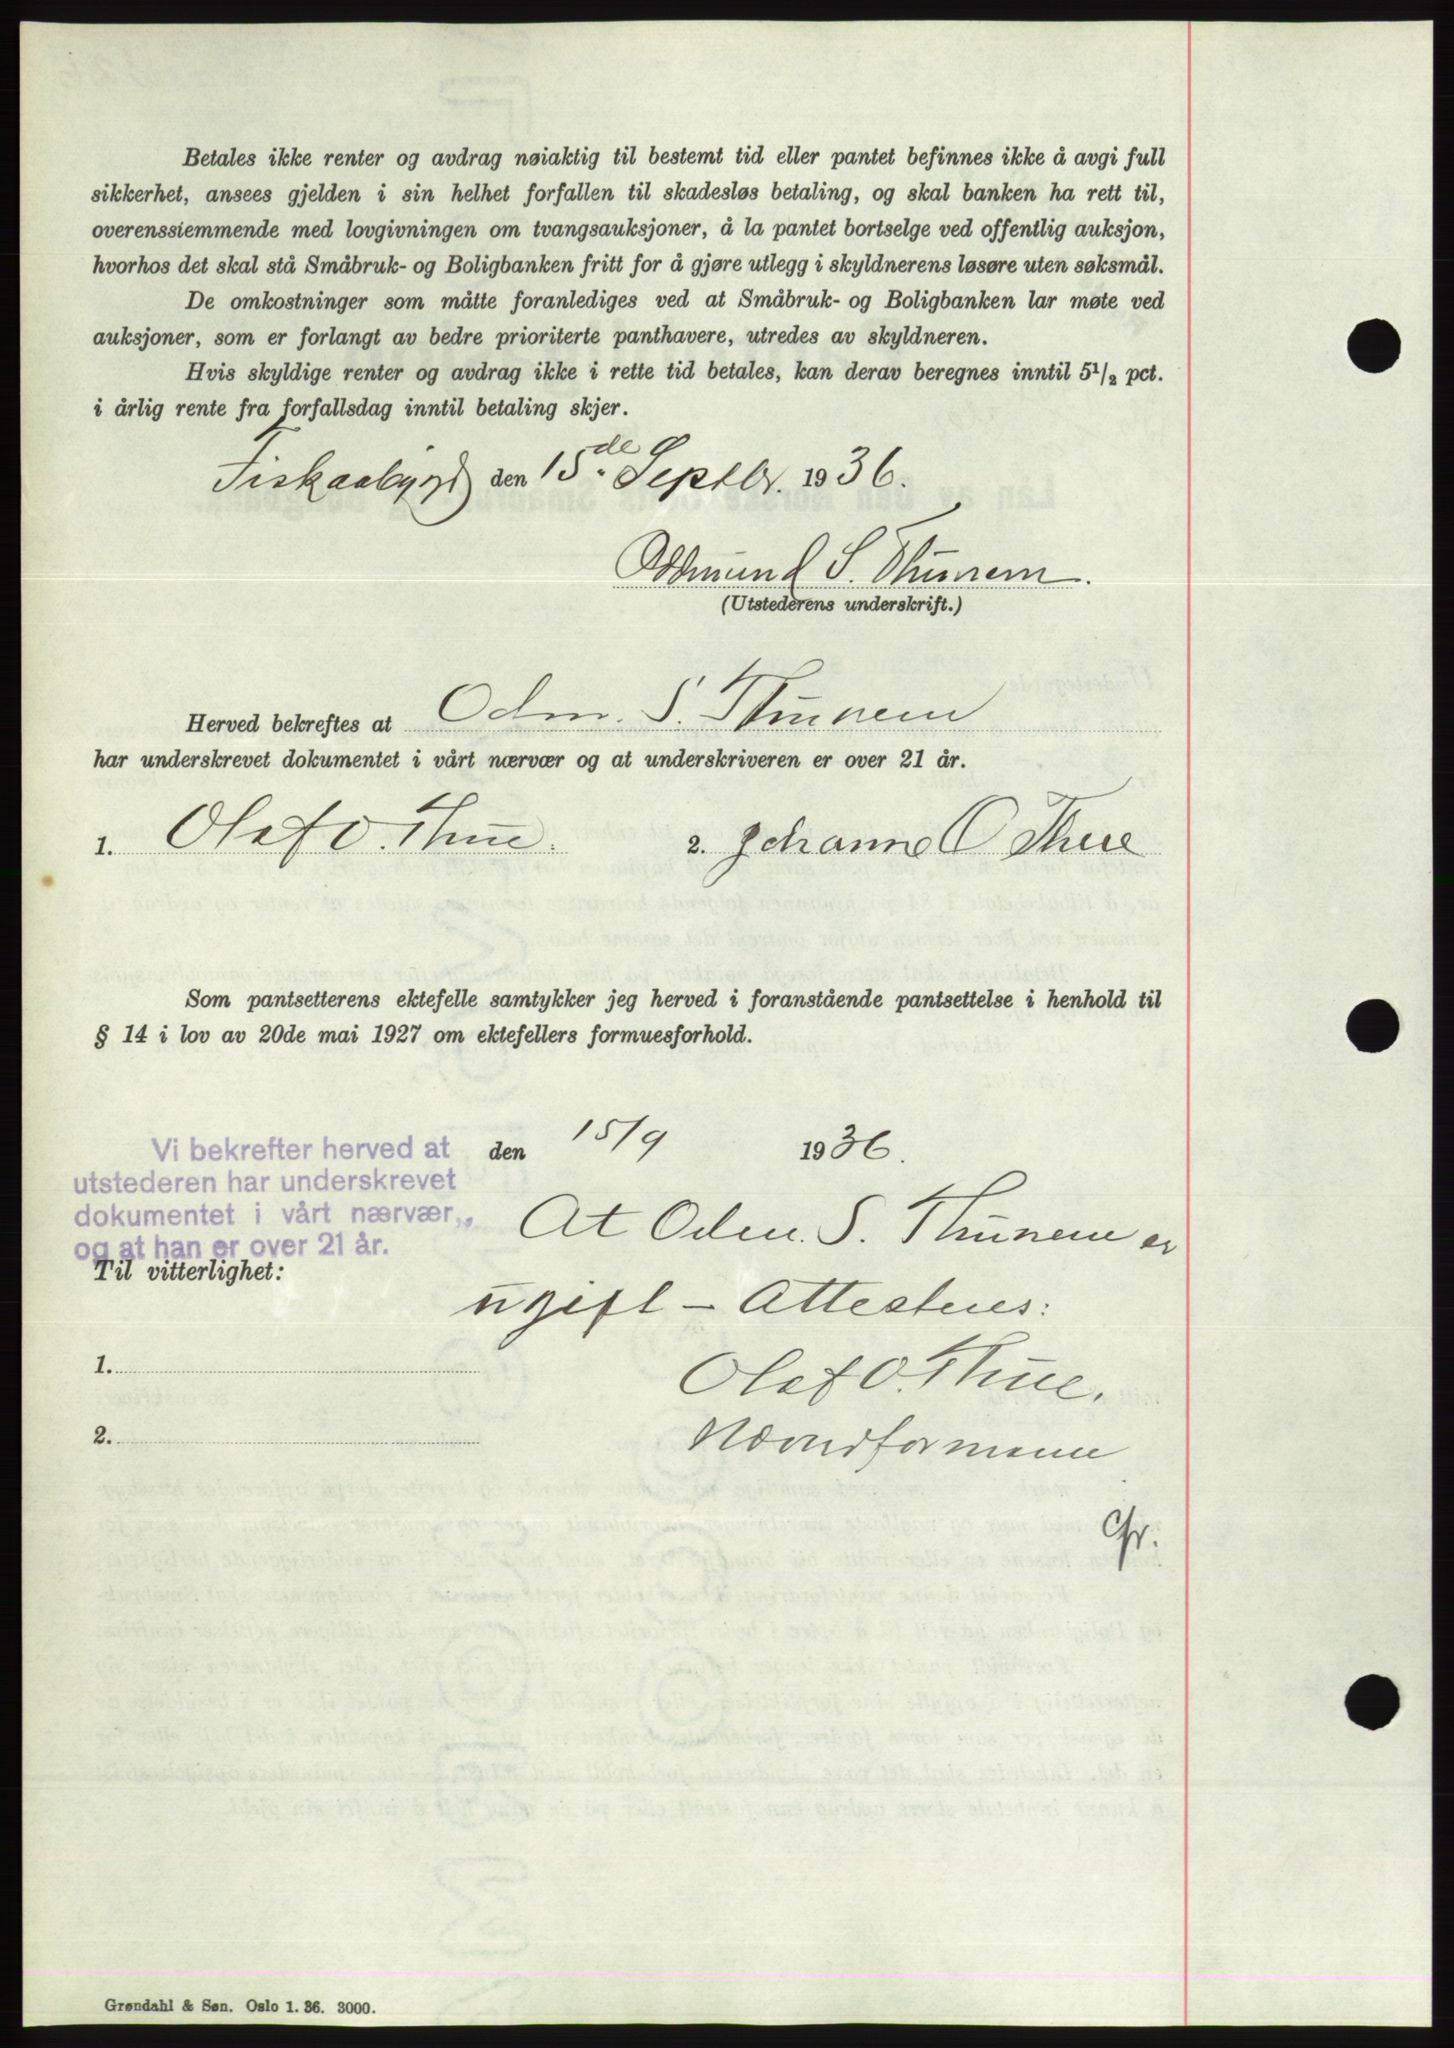 Betales ikke renter og avdrag nøiaktig til bestemt tid eller pantet befinnes ikke å avgi full
sikkerhet, ansees gjelden i sin helhet forfallen til skadesløs betaling, og skal banken ha rett til,
overenssiemmende med lovgivningen om tvangsauksjoner, å la pantet bortselge ved offentlig auksjon,
hvorhos det skal stå Småbruk- og Boligbanken fritt for å gjøre utlegg i skyldnerens løsøre uten søksmål.
De omkostninger som måtte foranlediges ved at Småbruk- og Boligbanken lar møte ved
auksjoner, som er forlangt av bedre prioriterte panthavere, utredes av skyldneren.
Hvis skyldige renter og avdrag ikke i rette tid betales, kan derav beregnes inntil 5 1/2 pct.
i årlig rente fra forfallsdag inntil betaling skjer.
Fiskaabygd den 15de Septbr. 1936.
Oddmund S. Thunem.
(Utstederens underskrift.)
Herved bekreftes at Odm. S. Thunem
har underskrevet dokumentet i vårt nærvær og at underskriveren er over 21 år.
1. Olaf O. Thue. 2. Johanne O Thue
Som pantsetterens ektefelle samtykker jeg herved i foranstående pantsettelse i henhold til
§ 14 i lov av 20de mai 1927 om ektefellers formuesforhold.
den 15/9 1936.
Vi bekrefter herved at
utstederen har underskrevet
dokumentet i vårt nærvær,
og at han er over 21 år.
Til vitterlighet:
At Odm. S. Thunem er
ugift – Attesteres:
1.
Olaf O. Thue.
2.
Nævndformann
Gr.
Grøndahl & Søn. Oslo 1. 36. 3000.